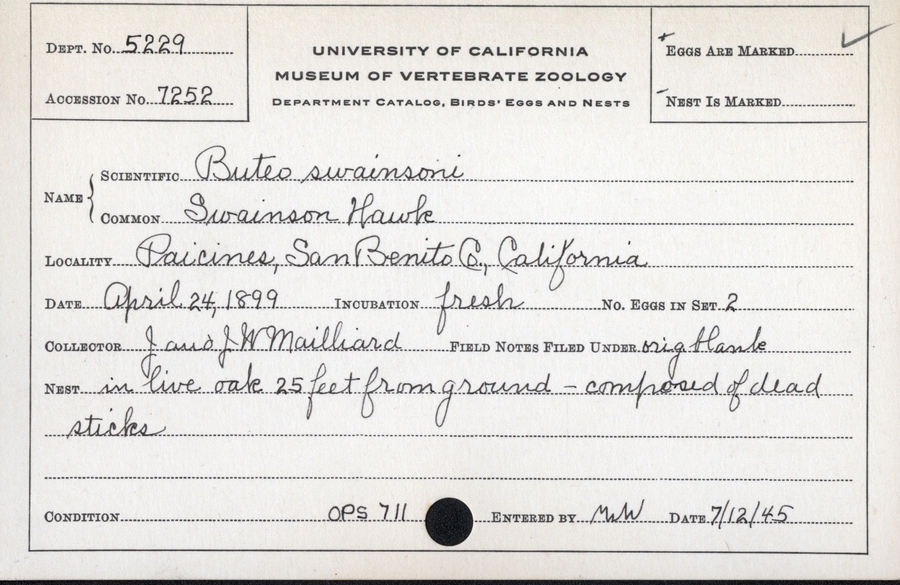 DEPT. NO. 5229
ACCESSION NO. 7252
UNIVERSITY OF CALIFORNIA
MUSEUM OF VERTEBRATE ZOOLOGY
DEPARTMENT CATALOG, BIRDS' EGGS AND NESTS
EGGS ARE MARKED
NEST IS MARKED
NAME
SCIENTIFIC Buteo swainsoni
COMMON Swainson Hawk
LOCALITY Paicines, San Benito Co., California
DATE April 24, 1899 INCUBATION fresh NO. EGGS IN SET 2
COLLECTOR J and J W Mailliard FIELD NOTES FILED UNDER orig blank
NEST in live oak 25 feet from ground – composed of dead
sticks
CONDITION OPS 711 ENTERED BY MWW DATE 7/12/45